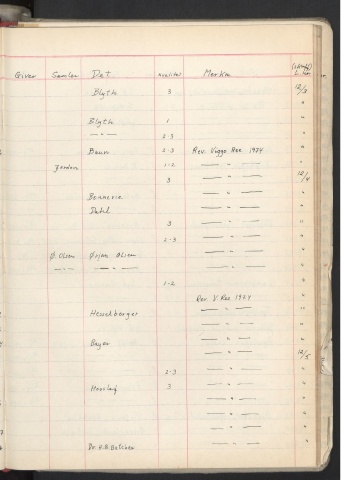 Giver Samler Det. Kvalitet Merkn.
Blyth 3 12/3 "
Blyth 1 "
— " — 2-3 "
Baun 2-3 Rev. Viggo Ree 1974 "
1-2 — " — "
3 — " — 10/4
Bonnevie — " — "
Dahl — " — "
3 — " — "
2-3 — " — "
Ø. Olsen Ørjan Olsen — " — "
— " — — " — — " — "
1-2 "
Rev. V. Ree 1974 "
Hesselberger — " — "
— " — "
Bayer — " — "
— " — 12/5
2-3 — " — "
3 — " — "
— " — "
— " — "
— " — "
Dr. H. B. — " — "